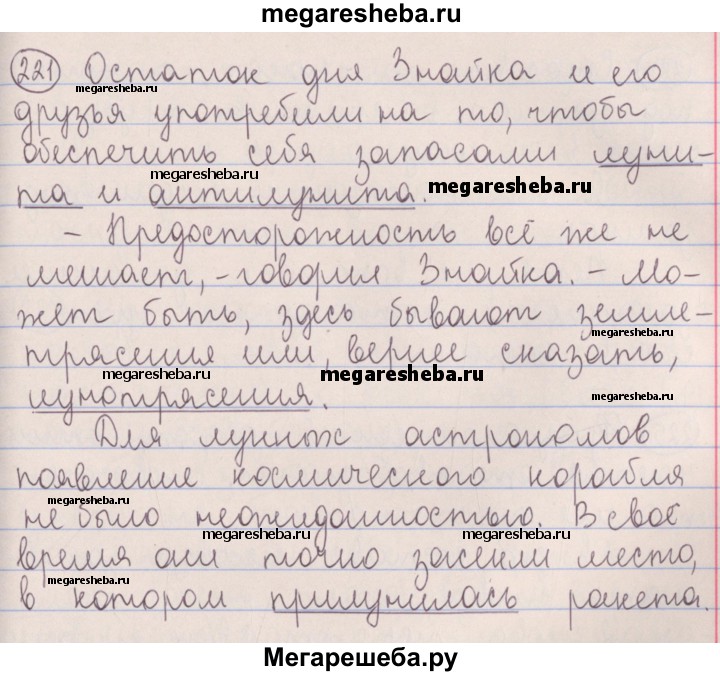 megaresheba.ru
221 Остаток дня Знайка и его
megaresheba.ru
друзья употребили на то, чтобы
megaresheba.ru
обеспечить себя запасами луни-
megaresheba.ru
megaresheba.ru
та и антилунита.
– Предосторожность всё же не
мешает, – говорил Знайка. – Мо-
жет быть, здесь бывают земле-
megaresheba.ru
трясения или, вернее сказать,
megaresheba.ru
megaresheba.ru
megaresheba.ru
лунотрясения.
Для лунных астрономов
появление космического корабля
megaresheba.ru
не было неожиданностью. В своё
megaresheba.ru
megaresheba.ru
время они точно засекли место,
megaresheba.ru
в котором прилунилась ракета.
Мегарешеба.ру